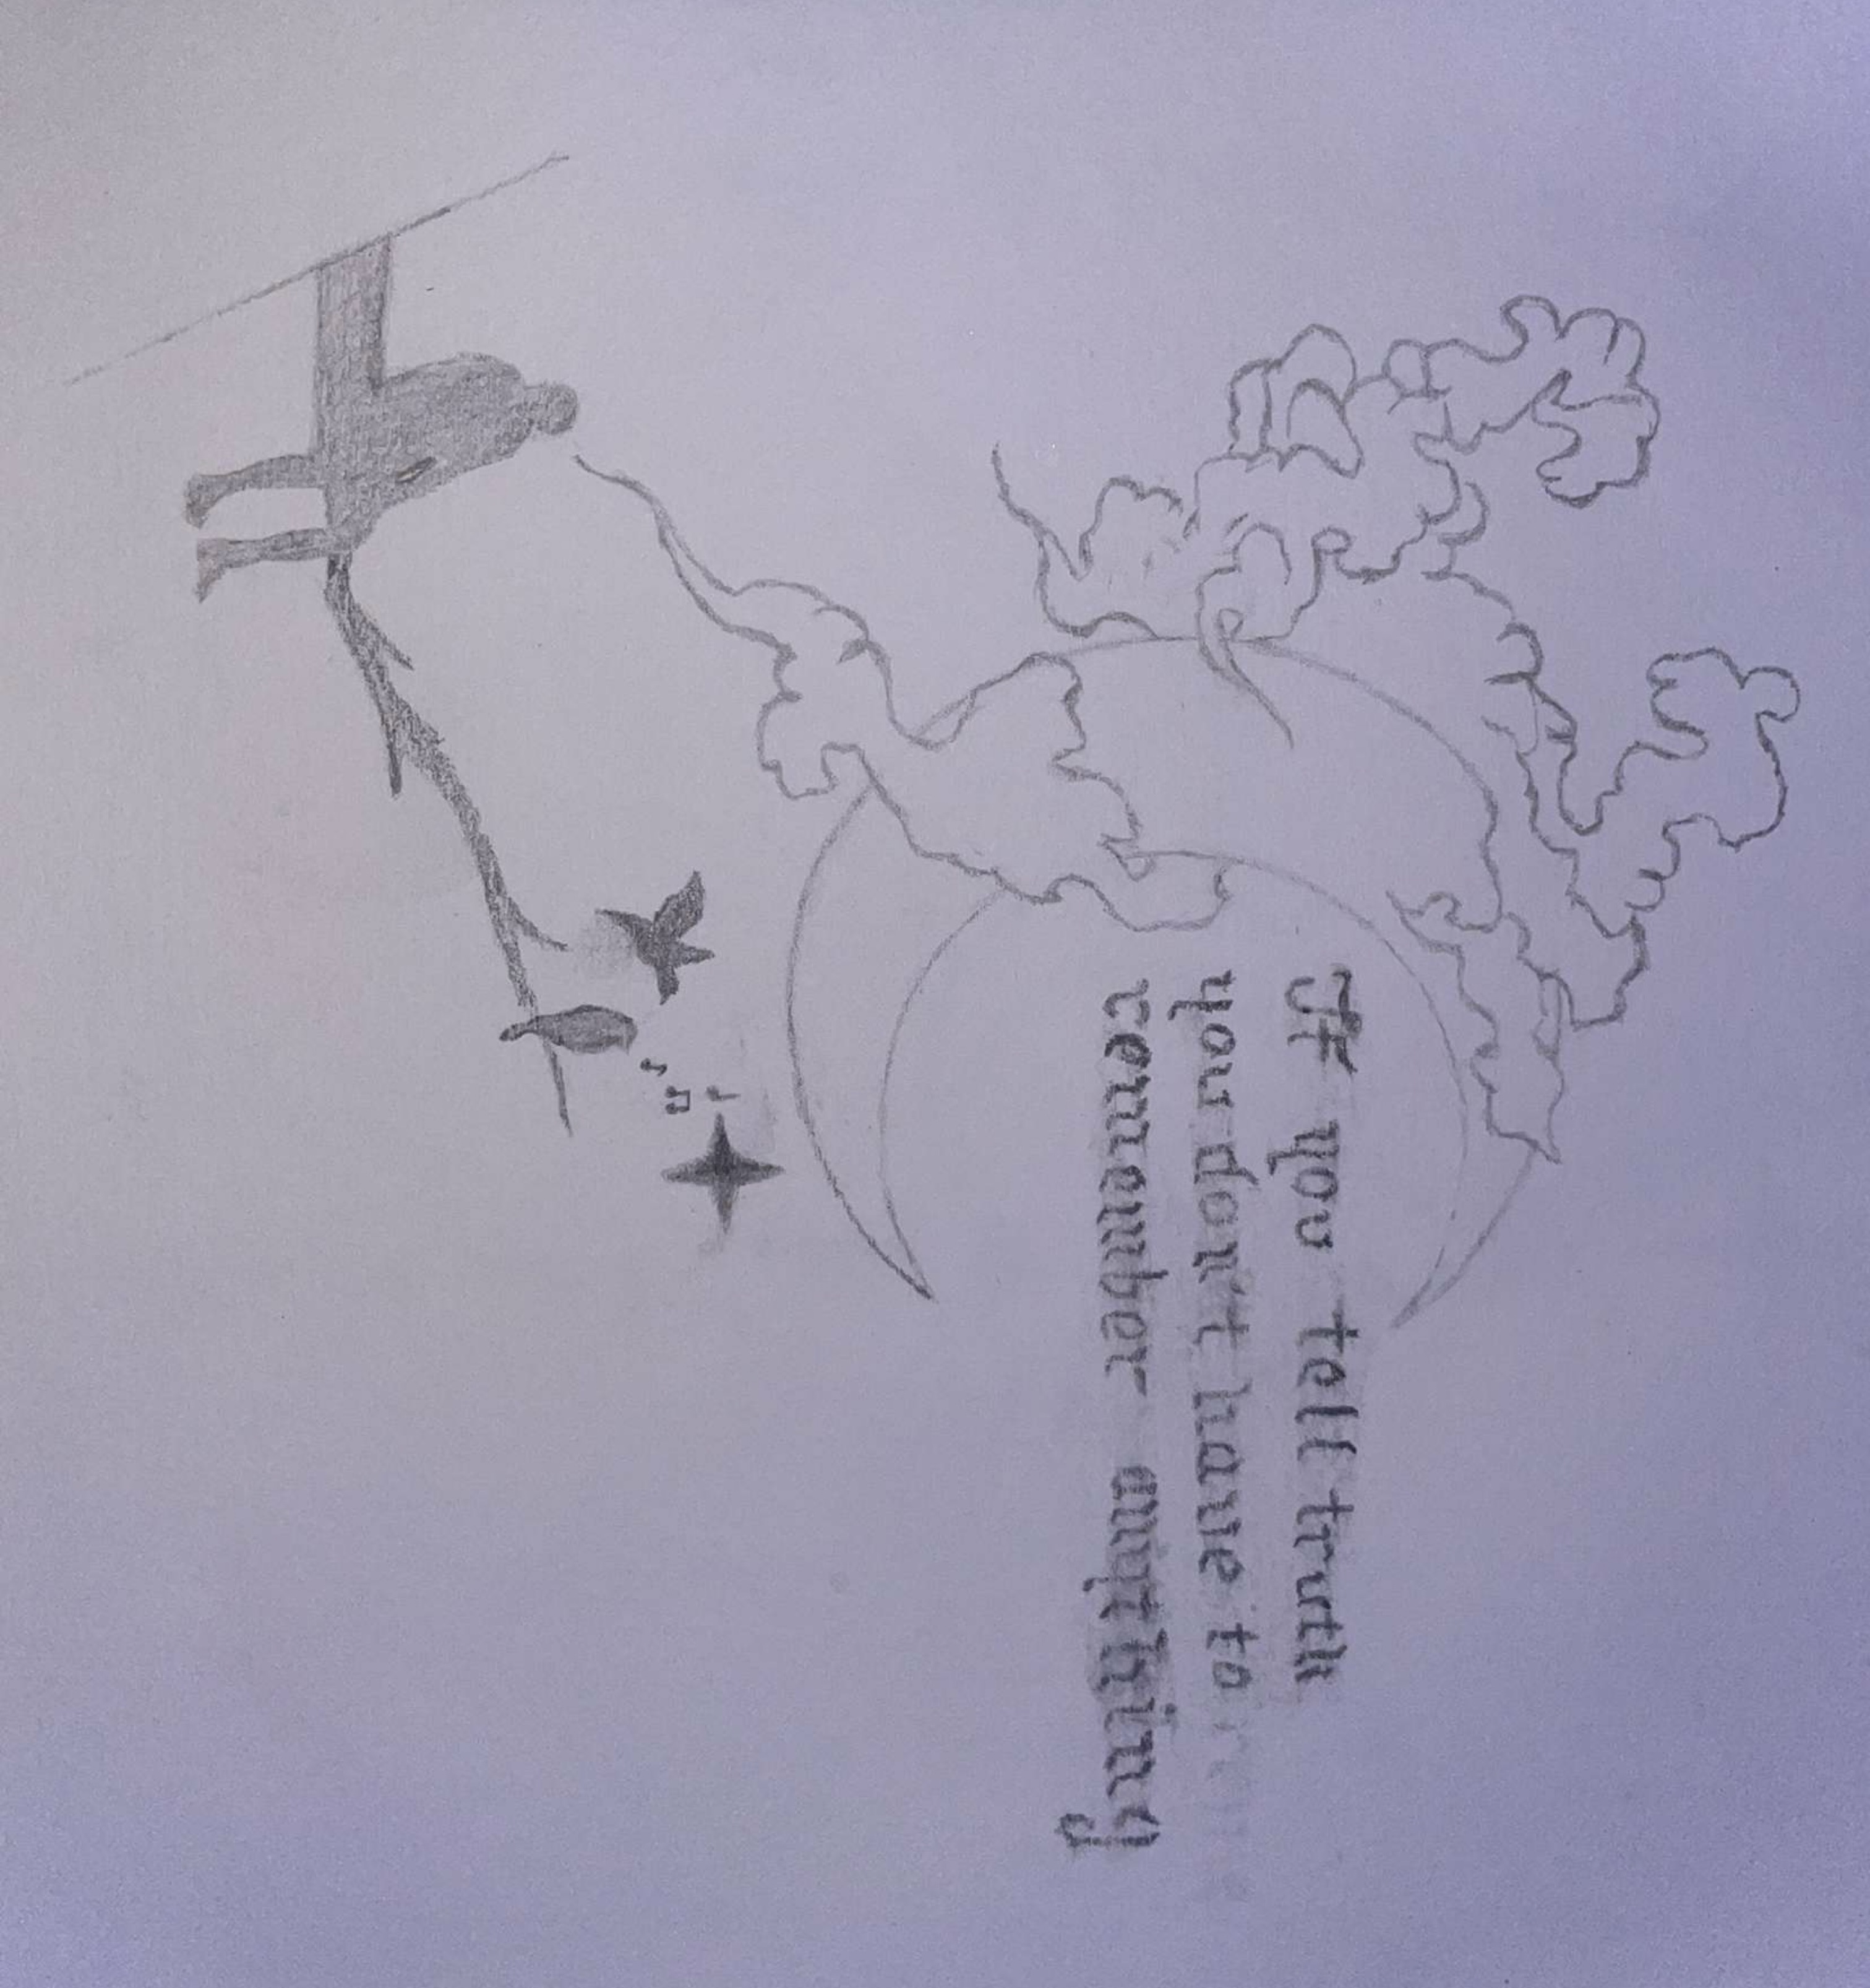 If you tell truth
you don't have to
remember anything